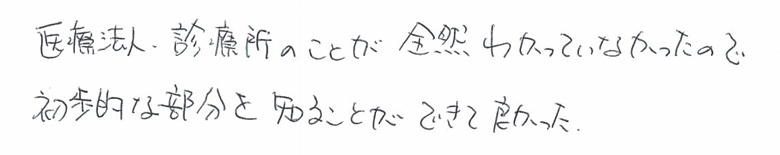 医療法人・診療所のことが全然わかっていなかったので
初歩的な部分を知ることができて良かった.